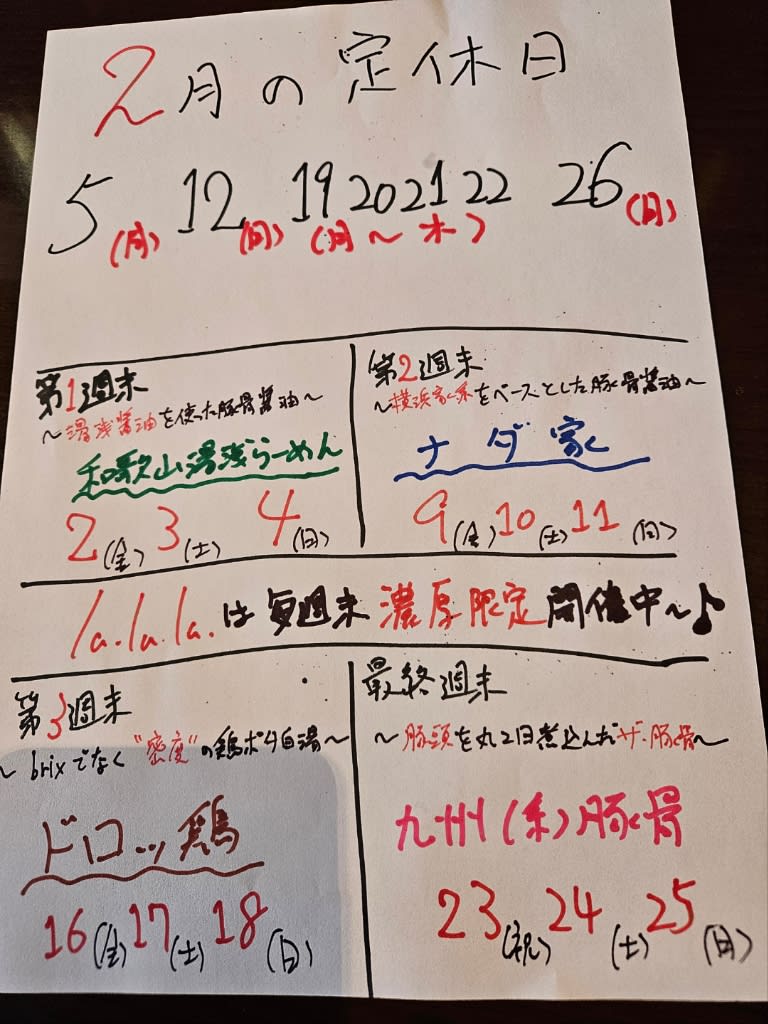 2月の定休日
5(月) 12(月) 19 20 21 22(月～木) 26(月)
第1週末
～湯浅醤油を使った豚骨醤油～
和歌山湯浅らーめん
2(金) 3(土) 4(日)
第2週末
～横浜家系をベースとした豚骨醤油～
ナダ家
9(金) 10(土) 11(日)
la.la.la.は毎週末濃厚限定開催中～♪
第3週末
～brixでなく"密度"の鶏ポタ白湯～
ドロッ鶏
16(金) 17(土) 18(日)
最終週末
～豚頭を丸2日煮込んだザ・豚骨～
九州(系)豚骨
23(祝) 24(土) 25(日)